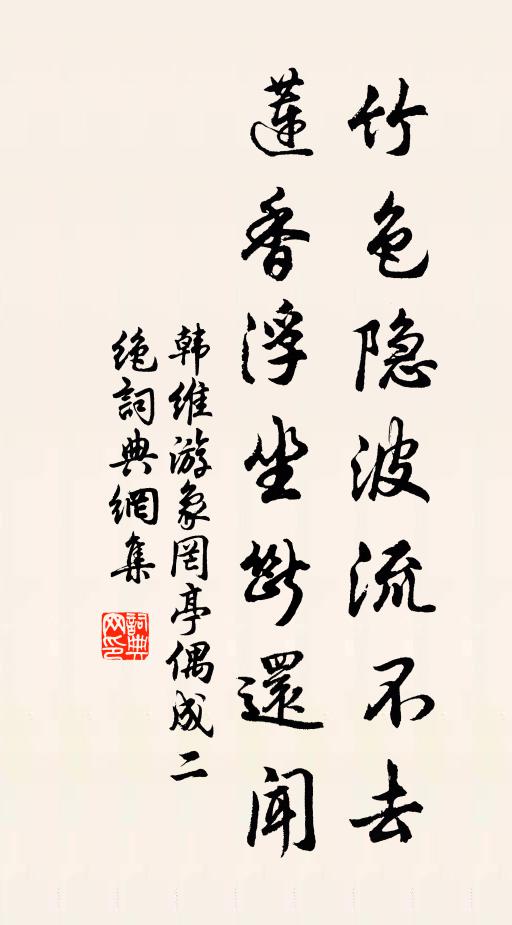 竹色隐波流不去
莲香浮坐断還闻
韩维游象罔亭偶成二
绝詞典網集
詞典网印